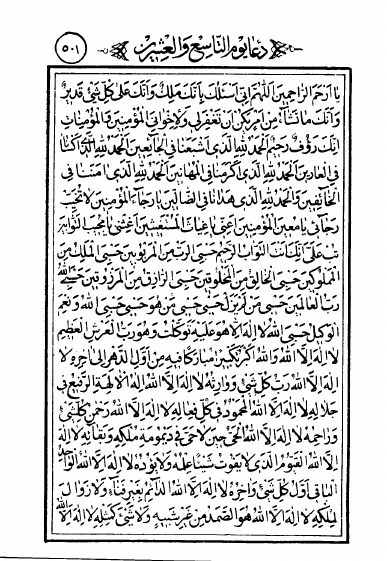 دعاء يوم التاسع والعشرين
٥٠١
يا ارحم الراحمين اللهم اني اسئلك بانك ملك وانك على كل شئ قدير
وانك ما تشاء من امر يكن ان تغفر لي ولاخواني المؤمنين والمؤمنات
انك رؤف رحيم الحمد لله الذي اشبعنا في الجائعين الحمد لله الذي كسانا
في العارين الحمد لله الذي كرمنا في المهانين الحمد لله الذي امننا في
الخائفين والحمد لله الذي هدانا في الضالين يا رجاء المؤمنين لا تخيب
رجائي يا معين المؤمنين اعني يا غياث المستغيثين اغثني يا مجيب التوابين
تب علي انك انت التواب الرحيم حسبي الرب من المربوبين حسبي الملك من
المملوكين حسبي الخالق من المخلوقين حسبي الرازق من المرزوقين حسبي الله
رب العالمين حسبي من لم يزل حسبي حسبي من هو حسبي حسبي الله ونعم
الوكيل حسبي الله لا اله الا هو عليه توكلت وهو رب العرش العظيم
لا اله الا الله والله اكبر تكبيرا مباركا فيه من اول الدهر الى اخره لا
اله الا الله رب كل شئ ووارثه لا اله الا الله اله الالهة الرفيع في
جلاله لا اله الا الله المحمود في كل فعاله لا اله الا الله رحمن كل شئ
وراحمه لا اله الا الله الحي حين لا حي في ديمومة ملكه وبقائه لا اله
الا الله القيوم الذي لا يفوت شيئا علمه ولا يؤده لا اله الا الله الواحد
الباقي اول كل شئ واخره لا اله الا الله الدائم بغير فناء ولا زوال
لملكه لا اله الا الله هو الصمد من غير شبيه ولا شئ كمثله لا اله الا الله